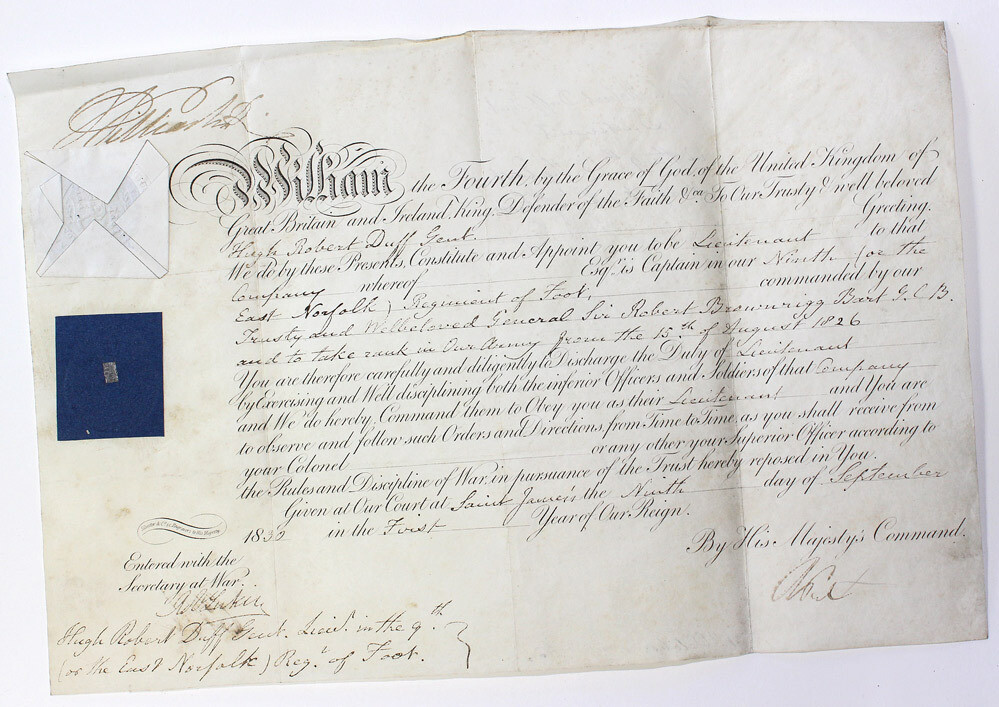 William R.
William the Fourth, by the Grace of God, of the United Kingdom of
Great Britain and Ireland, King, Defender of the Faith &ca. To Our Trusty & well beloved
Hugh Robert Duff Gent. Greeting.
We do by these Presents, Constitute and Appoint you to be Lieutenant to that
Company whereof Esqr. is Captain in our Ninth (or the
East Norfolk) Regiment of Foot, commanded by our
Trusty and Welbeloved General Sir Robert Brownrigg Bart G.C.B.
and to take rank in Our Army from the 15th of August 1826
You are therefore carefully and diligently to Discharge the Duty of Lieutenant
by Exercising and Well disciplining both the inferior Officers and Soldiers of that Company
and We do hereby Command them to Obey you as their Lieutenant and You are
to observe and follow such Orders and Directions from Time to Time as you shall receive from
your Colonel or any other your Superior Officer according to
the Rules and Discipline of War, in pursuance of the Trust hereby reposed in You.
Given at Our Court at Saint James's the Ninth day of September
1830 in the First Year of Our Reign.
By His Majesty's Command.
Entered with the
Secretary at War.
Hugh Robert Duff Gent. Lieut. in the 9th
(or the East Norfolk) Regt. of Foot.